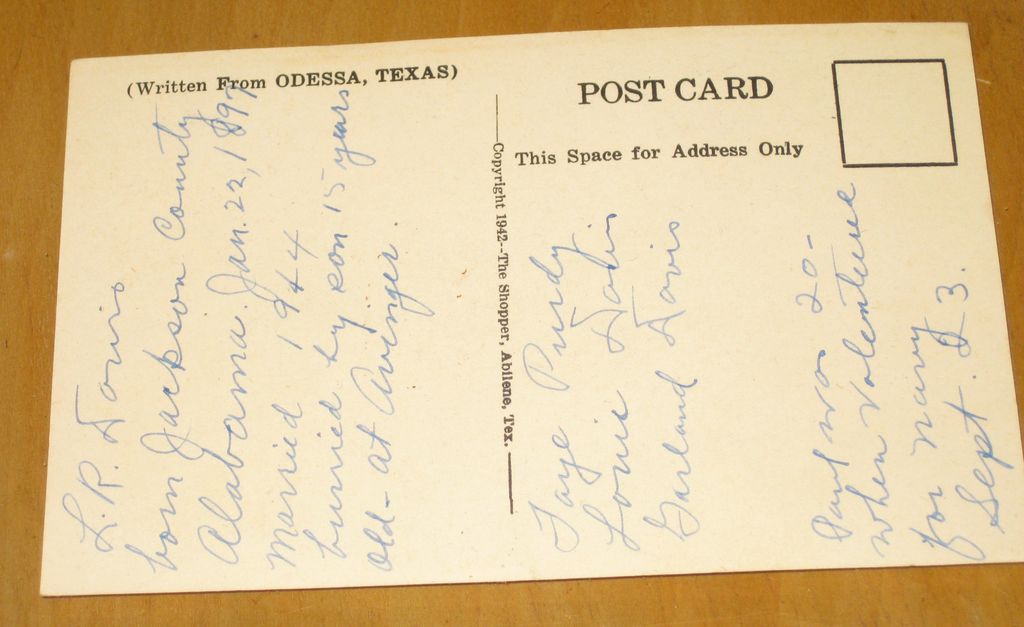 (Written From ODESSA, TEXAS)
POST CARD
This Space for Address Only
Copyright 1942--The Shopper, Abilene, Tex.
L.R. Davis
born Jackson County
Alabama. Jan. 22, 1897
Married 1944
burried by son 15 years
old - at Avinger.
Faye Purdy.
Lonie
Garland Davis
Paul was 20-
when volentered
for navy
Sept. 23.